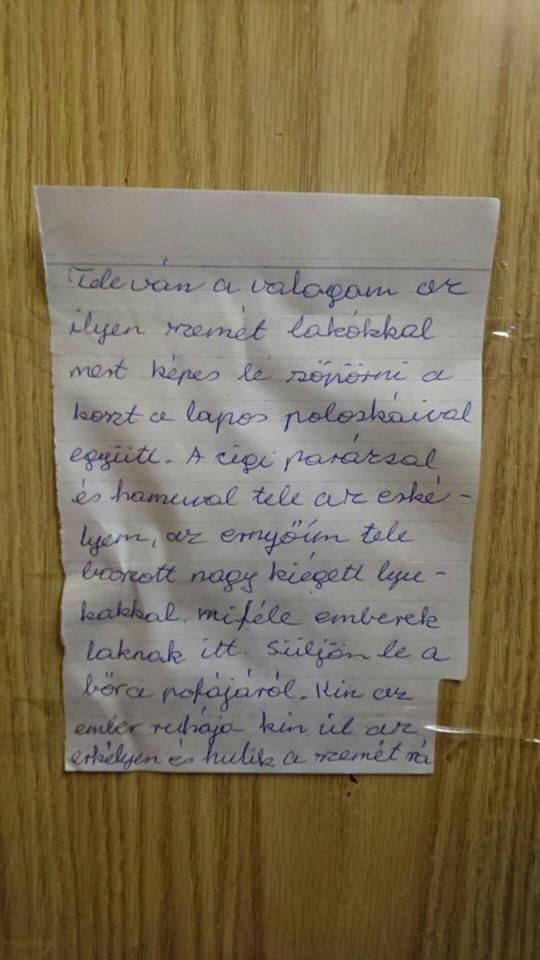 Tele ván a valagam az
ilyen szemét lakókkal
mert képes le söpörni a
koszt a lapos poloskáival
együtt. A cigi parázsal
és hamuval tele az erké-
lyem, az ernyőim tele
baszott nagy kiégett lyu-
kakkal. miféle emberek
laknak itt. Süljön le a
bőr a pofájáról. Kin az
ember ruhája kin ül az
erkélyen és hullik a szemét rá